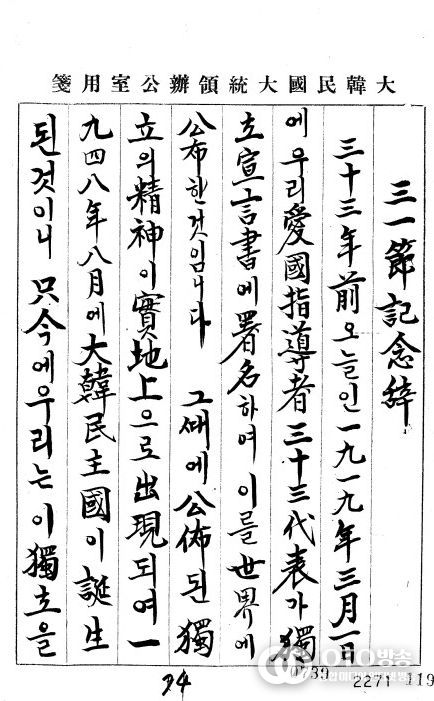 大韓民國大統領辦公室用箋
三一節記念辞
三十三年前오늘인一九一九年三月一日
에우리愛國指導者三十三代表가獨
立宣言書에署名하여이를世界에
公布한것임니다 그때에公佈된獨
立의精神이實地上으로出現되여一
九四八年八月에大韓民主國이誕生
된것이니 只今에우리는이獨立을
94
0739
2271 119